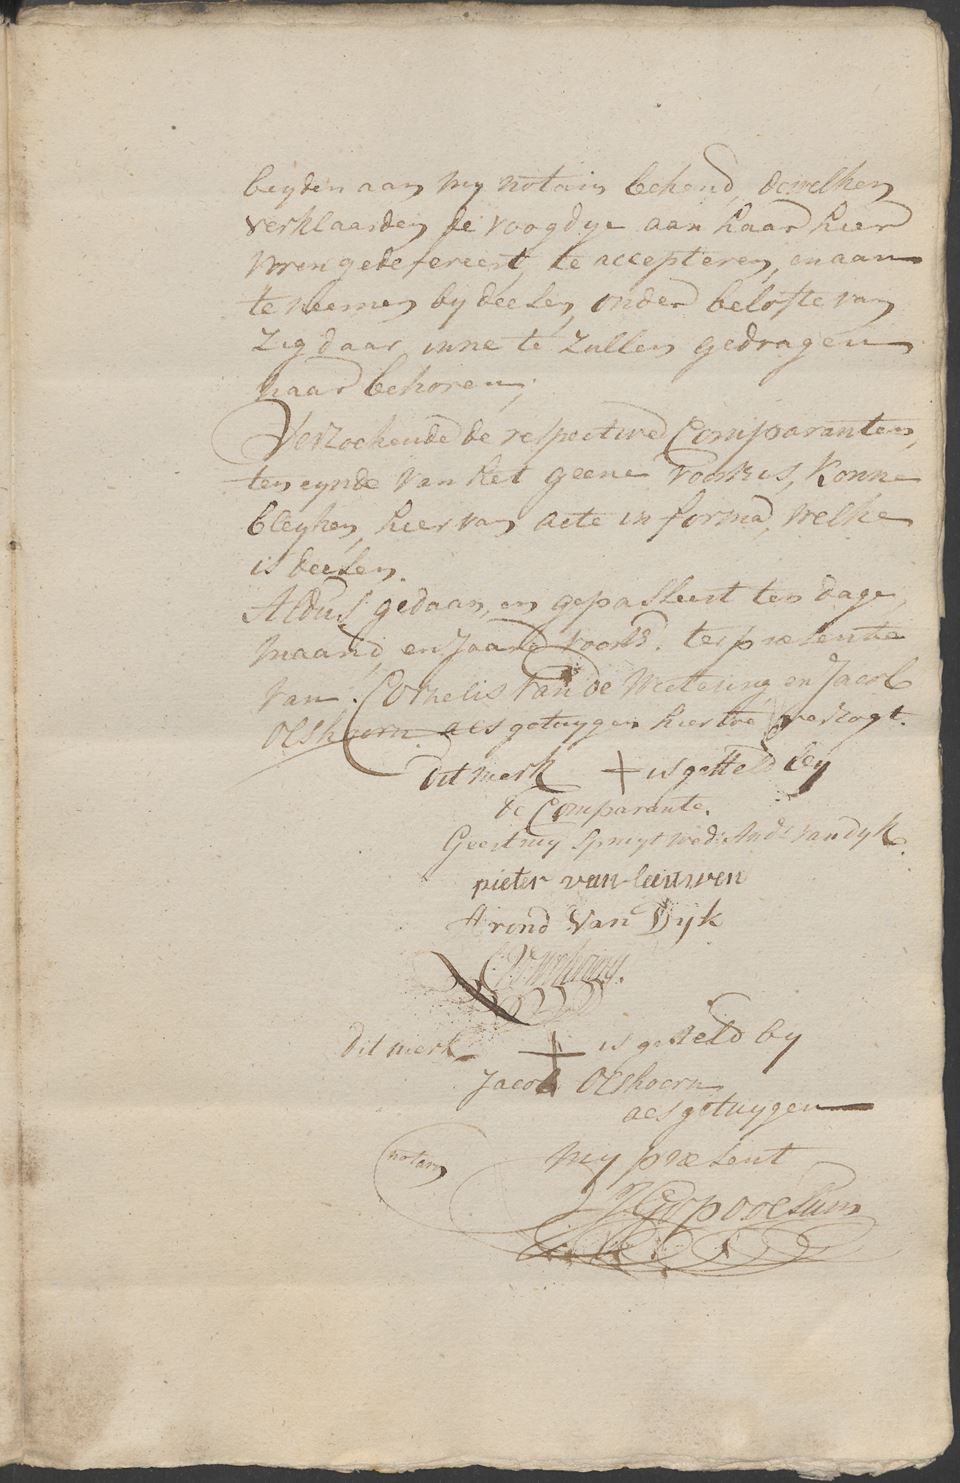 beyden aan my notaris bekend, dewelken
verklaarden de voogdye aan haar hier
vooren gedefereert, te accepteren, en aan
te neemen by deesen, onder belofte van
Zig daar inne te Zullen gedragen
naar behoren,
Verzoekende de respective Comparanten,
ten eynde van het geene voorsz is, konne
bleyken, hier van acte in forma, welke
is deesen.
Aldus gedaan, en gepasseert ten dage,
maand, en Jaare voorsz. ter presentie
van Cornelis van de Weetering en Jacob
Olshoorn als getuygen hier toe verzogt.
Dit merk + is gestelt by
de Comparante.
Geertruy Spruyt wed: And: van dyk.
pieter van leeuwen
Arend Van Dyk
Dit merk + is gesteld by
Jacob Olshoorn
als getuygen
my present
notaris